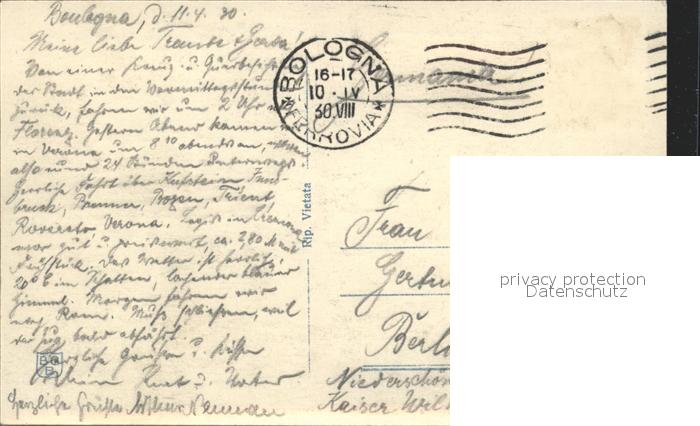 Boulogna, d. 11.4.30.
Meine liebe Traute & Gerda!
Von einer Kreuz- u. Querbesich
der Stadt in den Vormittagsstun
zurück, fahren wir um 2 Uhr n
Florenz. Gestern Abend kamen
in Verona um 8 10 abends an,
also rund 24 Stunden Unterwegs
Herrliche Fahrt über Kufstein, Inns-
bruck, Brenner, Bozen, Trient,
Rovereto, Verona. Logis in Verona
war gut u. preiswert, ca. 2,80 M mit
Frühstück. Das Wetter ist herrlich,
20° C im Schatten, lachender blauer
Himmel. Morgen fahren wir
nach Rom. Muß schließen, weil
der Zug bald abfährt.
Herzliche Grüße u. Küsse
Herzliche Grüße Arthur Neumann
BOLOGNA
16-17
10 · IV
30.VIII
FERROVIA
Germania
Rip. Vietata
Frau
Gertru
Berli
Niederschön
Kaiser Wilh
privacy protection
Datenschutz